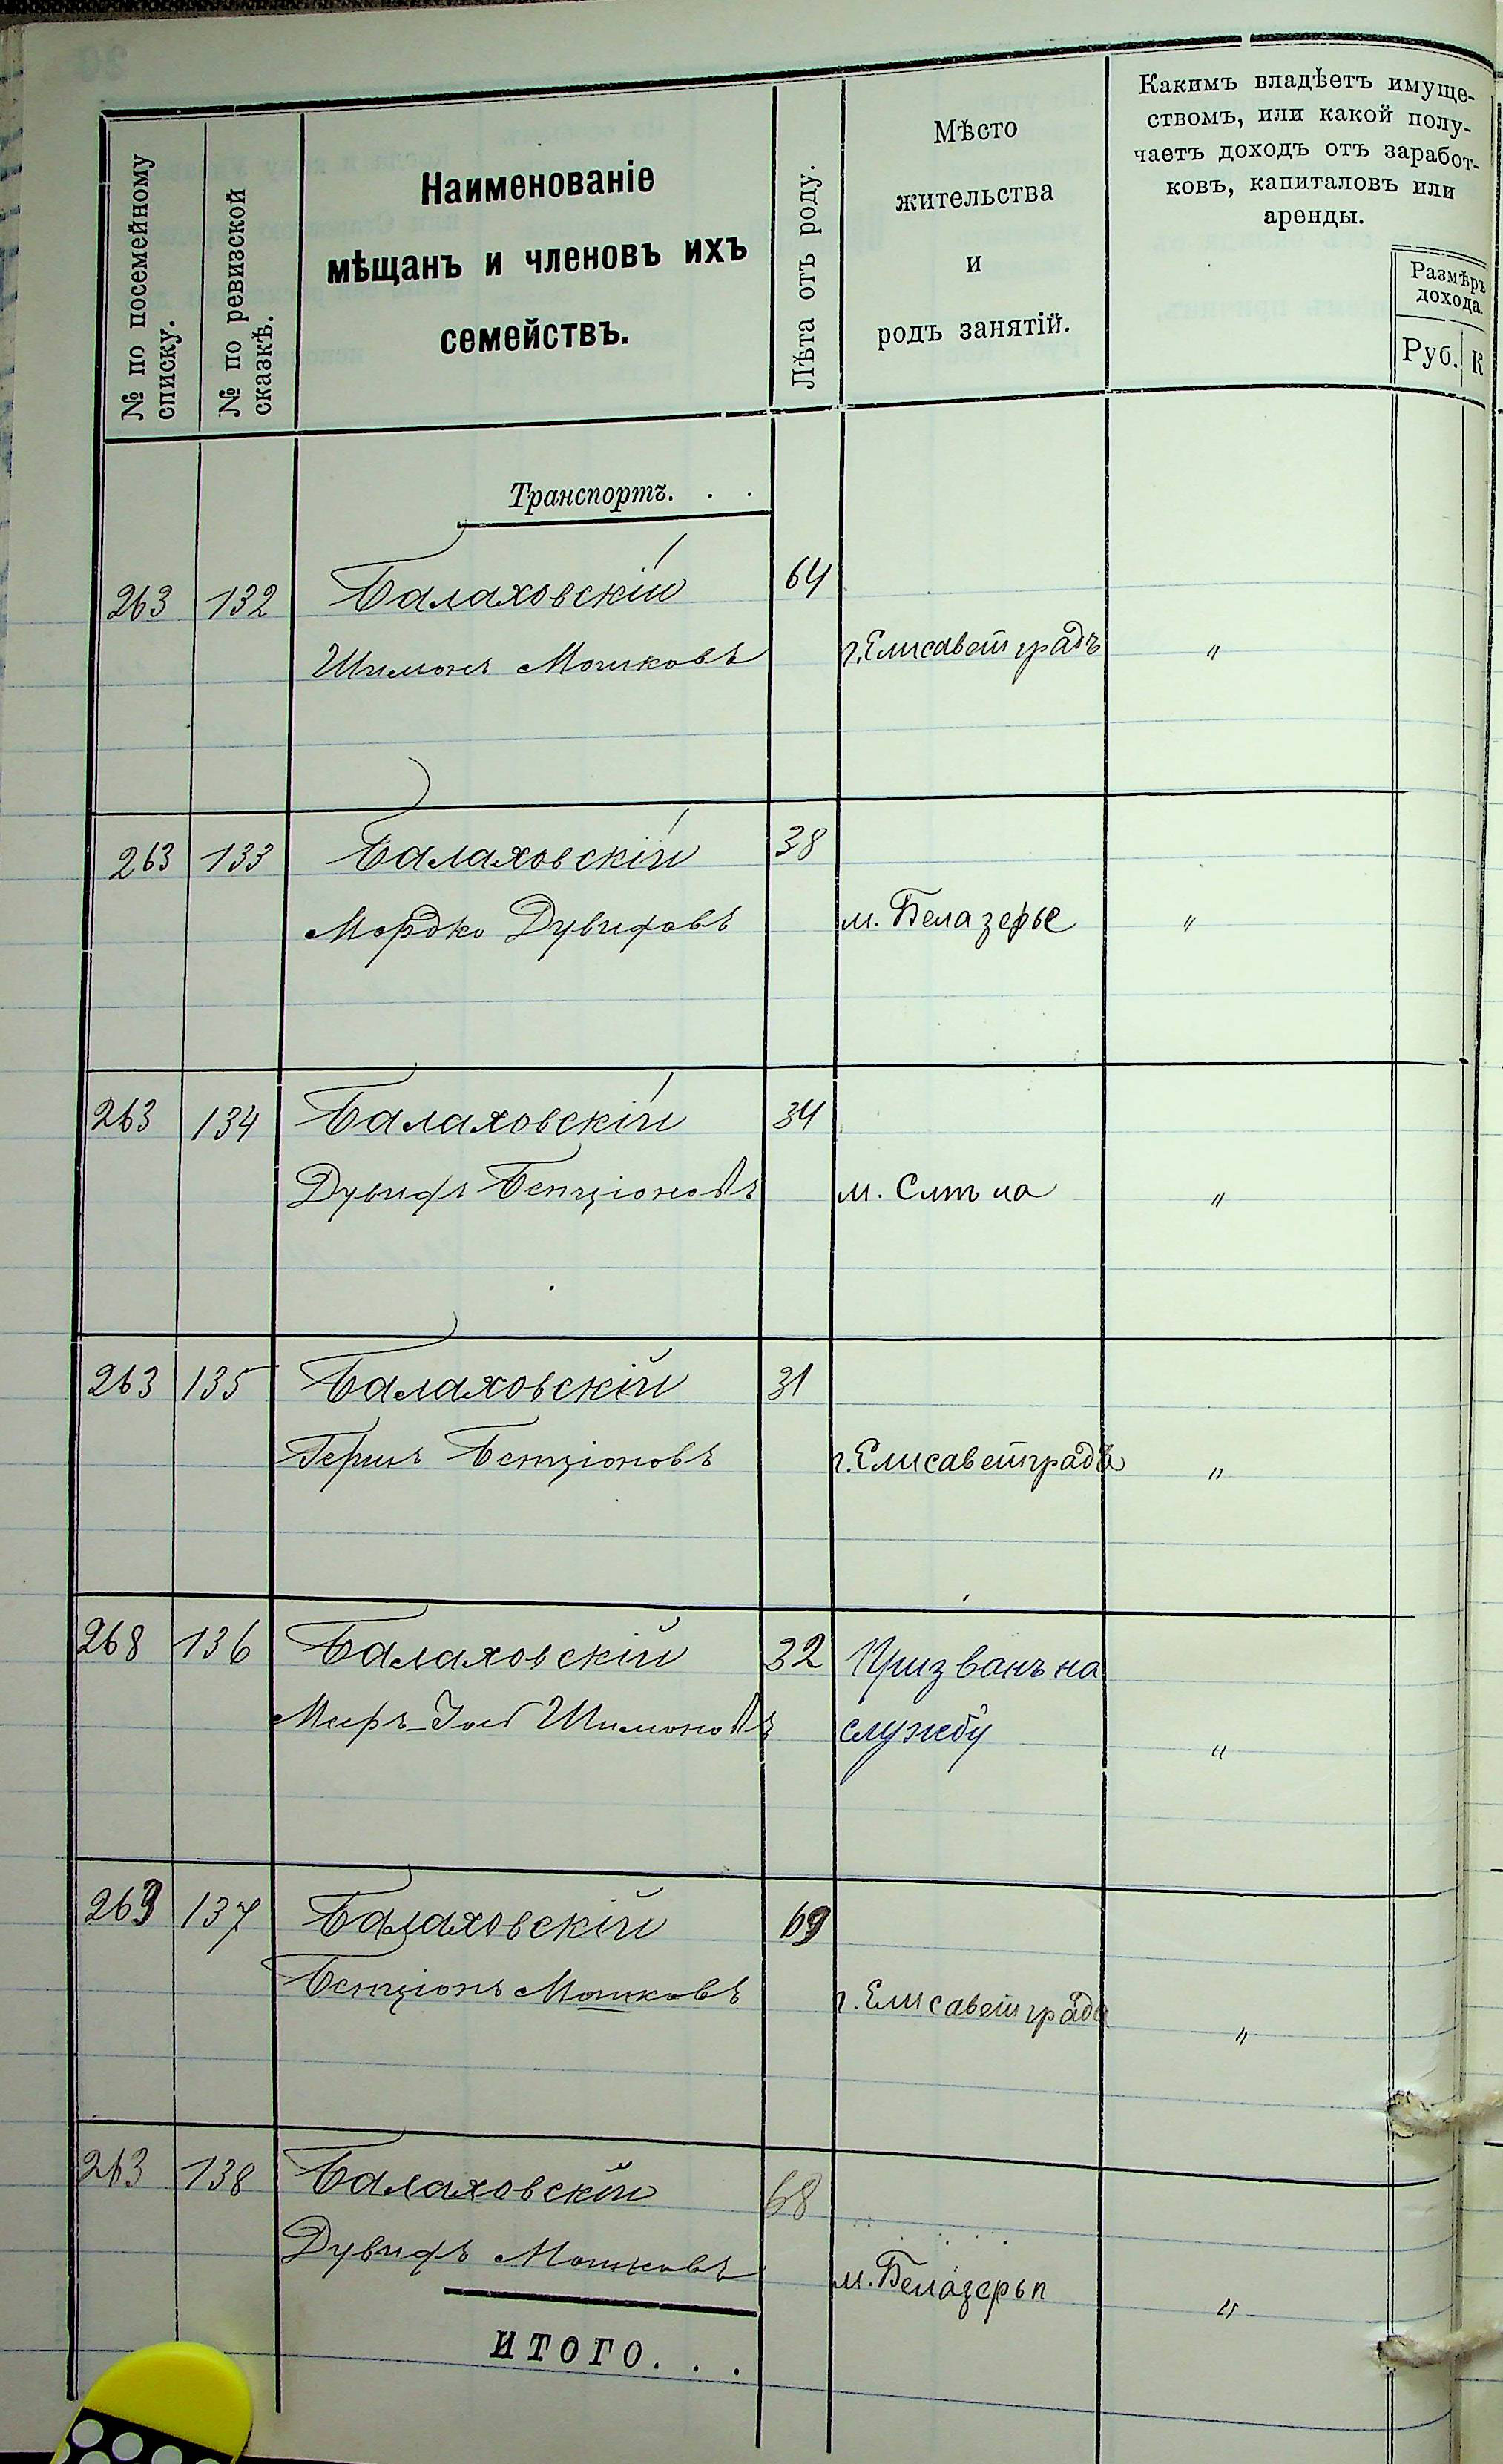 № по посемейному
списку.
№ по ревизской
сказкѣ.
Наименованіе
мѣщанъ и членовъ ихъ
семействъ.
Лѣта отъ роду.
Мѣсто
жительства
и
родъ занятій.
Какимъ владѣетъ имуще-
ствомъ, или какой полу-
чаетъ доходъ отъ заработ-
ковъ, капиталовъ или
аренды.
Размѣръ
дохода.
Руб. К
Транспортъ. . .
263 132 Балаховскій 64
Шимонъ Мошковъ г. Елисаветградъ "
263 133 Балаховскій 38
Мордко Дувидовъ м. Белазерье "
263 134 Балаховскій 34
Дувидъ Бенціоновъ м. Смѣла "
263 135 Балаховскій 31
Гершъ Бенціоновъ г. Елисаветградъ "
268 136 Балаховскій 32 Призванъ на
Мееръ- Шимоновъ службу "
263 137 Балаховскій 69
Бенціонъ Мошковъ г. Елисаветградъ "
263 138 Балаховскій 68
Дувидъ Мошковъ м. "
ИТОГО. . .